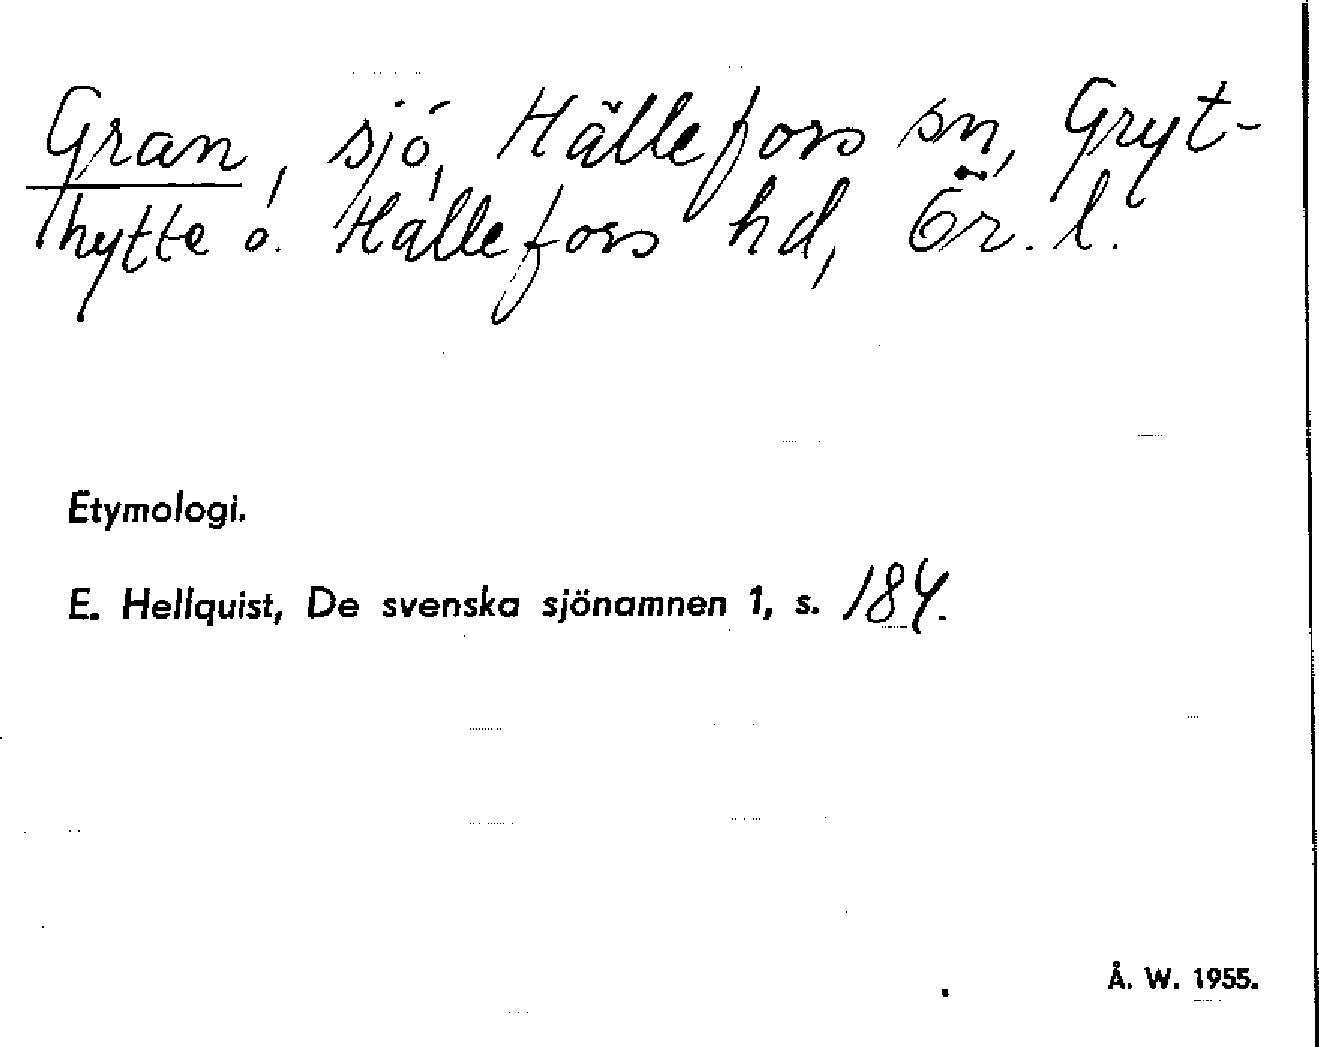 Gran, sjö, Hällefors sn, Gryt-
hytte o. Hällefors hd, Ör. l.
Etymologi.
E. Hellquist, De svenska sjönamnen 1, s. 184.
Å. W. 1955.